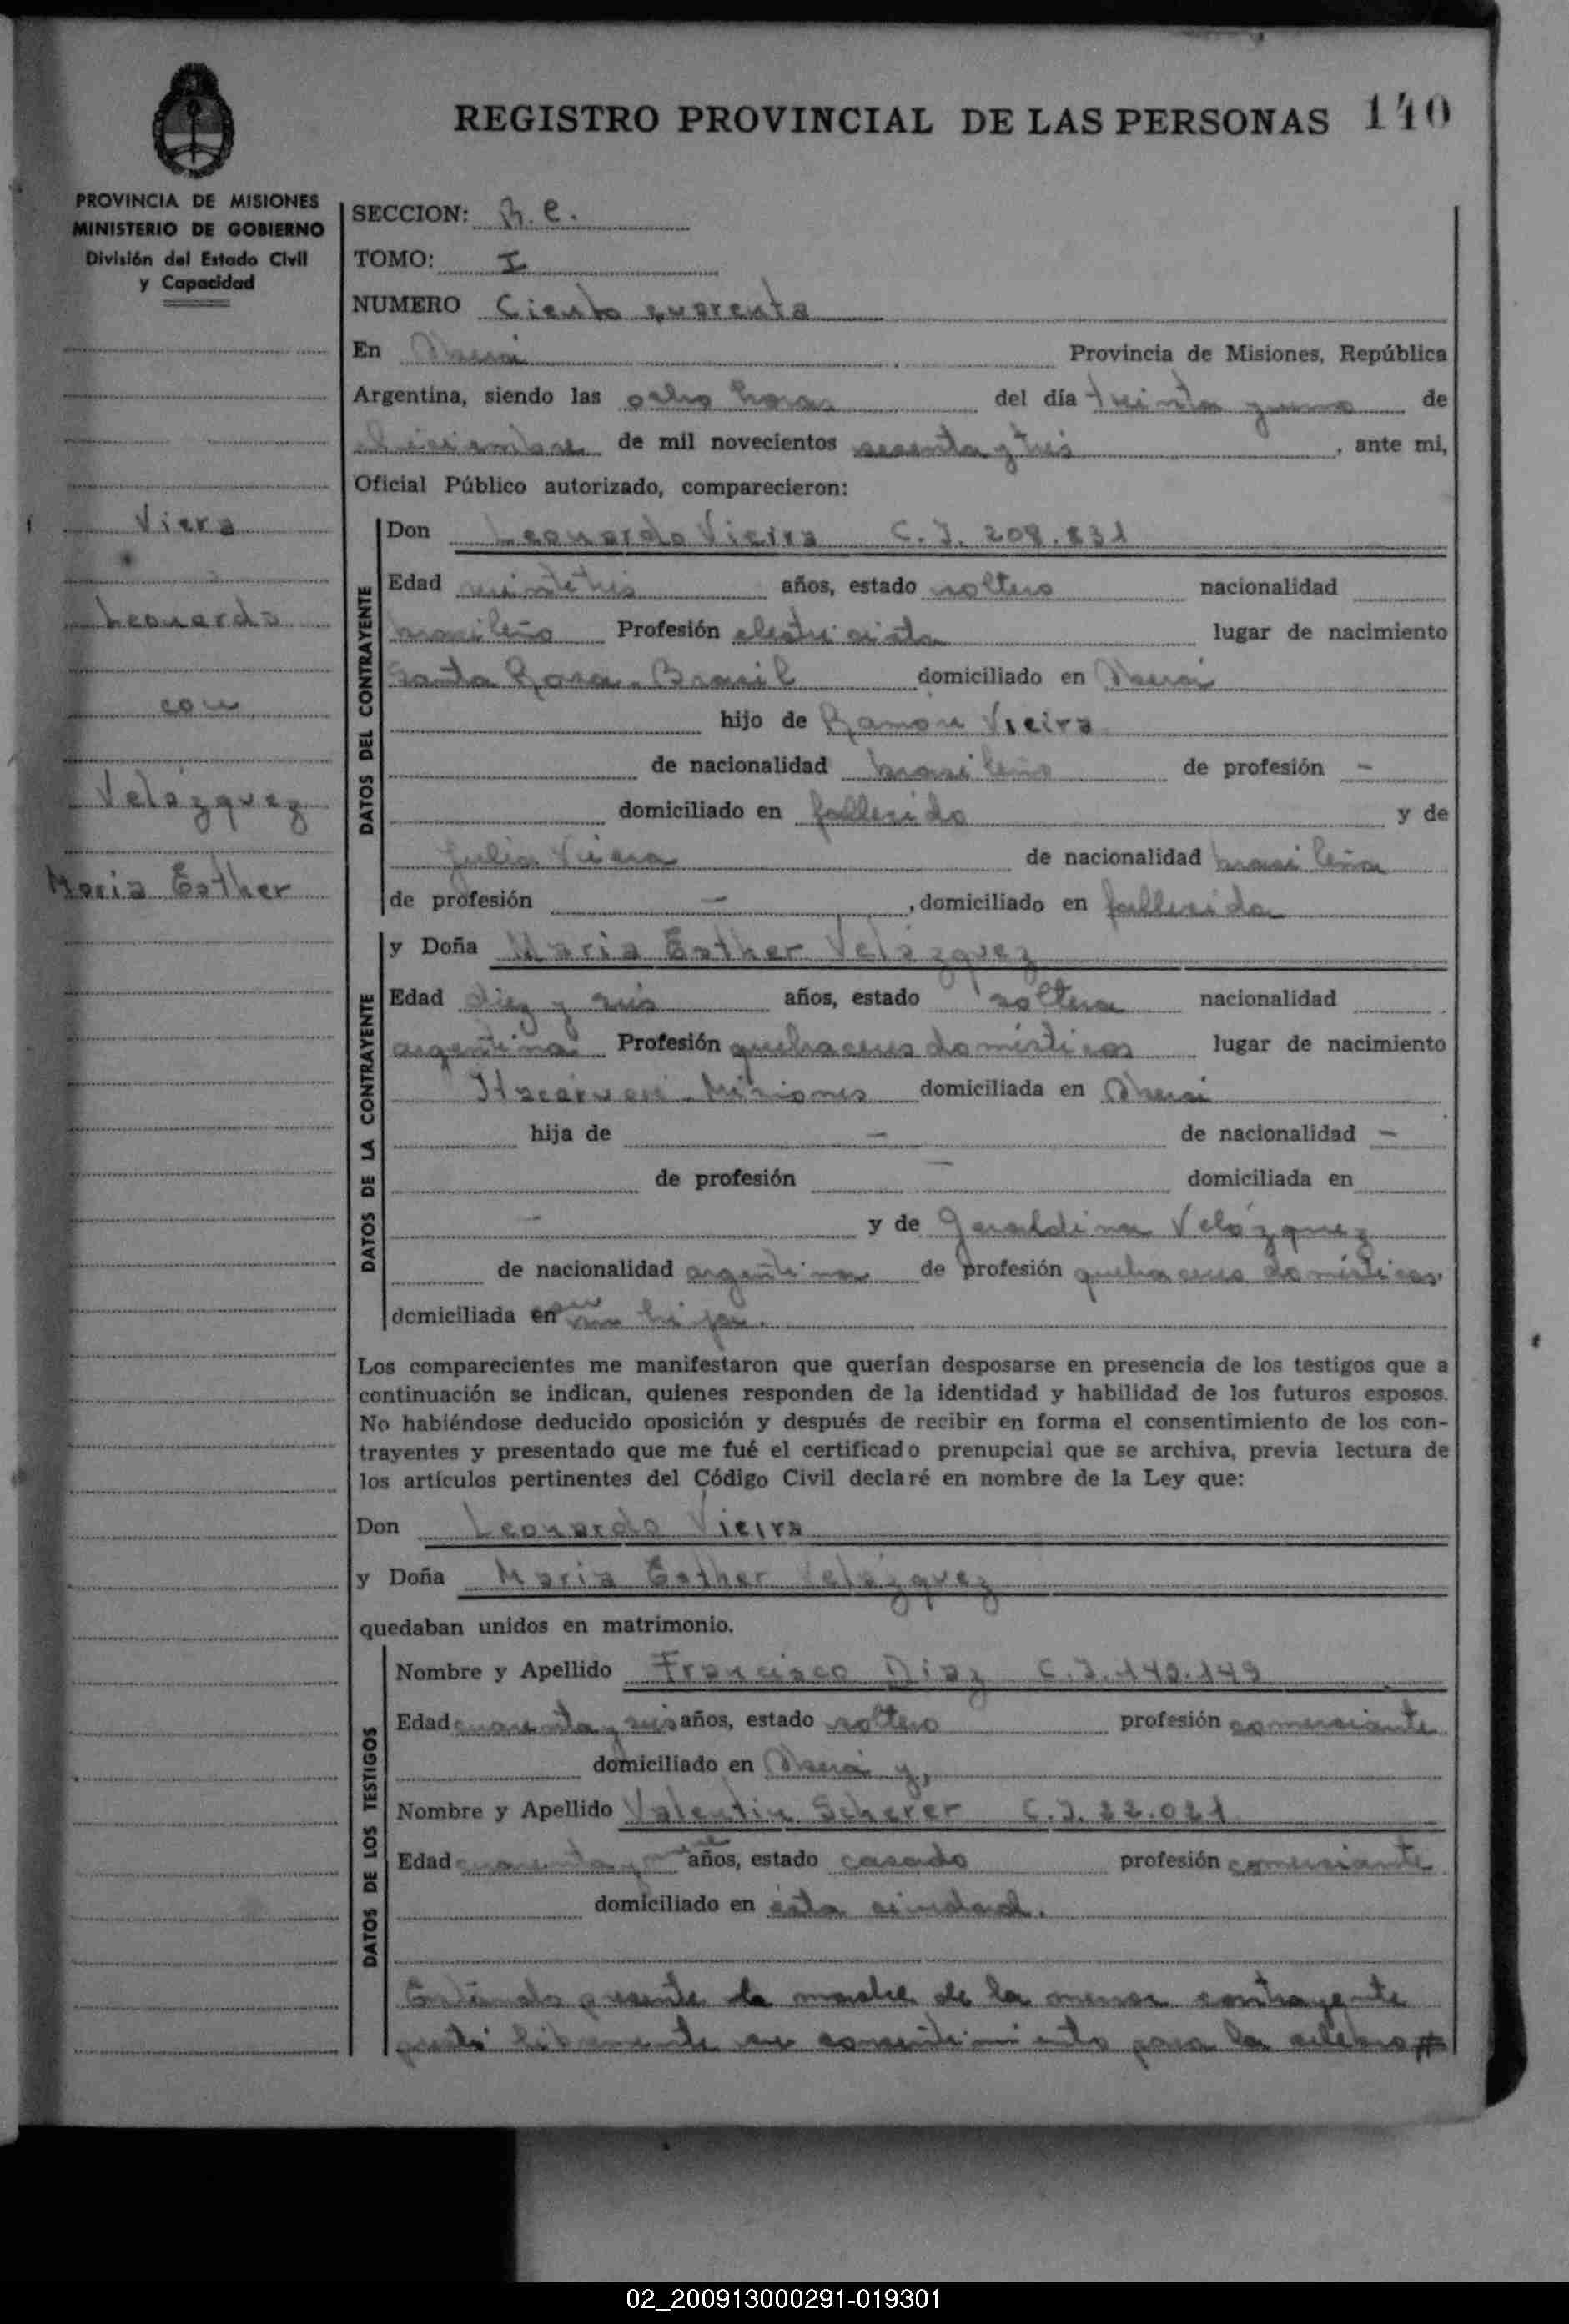 REGISTRO PROVINCIAL DE LAS PERSONAS 140
PROVINCIA DE MISIONES
MINISTERIO DE GOBIERNO
División del Estado Civil
y Capacidad
Viera
Leonardo
con
Velázquez
Maria Esther
SECCION: R. C.
TOMO: I
NUMERO Ciento cuarenta
En Oberá Provincia de Misiones, República
Argentina, siendo las ocho horas del día treinta y uno de
diciembre de mil novecientos sesenta y tres, ante mi,
Oficial Público autorizado, comparecieron:
DATOS DEL CONTRAYENTE
Don Leonardo Vieira C. I. 208.831
Edad veintitrés años, estado soltero nacionalidad
brasileño Profesión electricista lugar de nacimiento
Santa Rosa - Brasil domiciliado en Oberá
hijo de Ramon Vieira
de nacionalidad brasileño de profesión -
domiciliado en fallecido y de
Julia Viera de nacionalidad brasileña
de profesión - , domiciliado en fallecida
DATOS DE LA CONTRAYENTE
y Doña Maria Esther Velázquez
Edad diez y seis años, estado soltera nacionalidad
argentina Profesión quehaceres domésticos lugar de nacimiento
Itacaruaré - Misiones domiciliada en Oberá
hija de - de nacionalidad -
de profesión - domiciliada en
- y de Geraldina Velázquez
de nacionalidad argentina de profesión quehaceres domésticos,
domiciliada en hija.
Los comparecientes me manifestaron que querían desposarse en presencia de los testigos que a
continuación se indican, quienes responden de la identidad y habilidad de los futuros esposos.
No habiéndose deducido oposición y después de recibir en forma el consentimiento de los con-
trayentes y presentado que me fué el certificado prenupcial que se archiva, previa lectura de
los artículos pertinentes del Código Civil declaré en nombre de la Ley que:
Don Leonardo Vieira
y Doña Maria Esther Velázquez
quedaban unidos en matrimonio.
DATOS DE LOS TESTIGOS
Nombre y Apellido Francisco Diaz C. I. 149.149
Edad cuarenta y seis años, estado soltero profesión comerciante
domiciliado en Oberá y,
Nombre y Apellido Valentin Scherer C. I. 22.021
Edad cuarenta y años, estado casado profesión comerciante
domiciliado en ésta ciudad.
Estando presente la madre de la menor contrayente
prestó libremente su consentimiento para la celebra
02_200913000291-019301